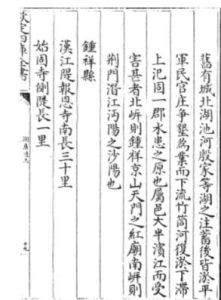 舊有城北湖池河殷家寺湖之注蓄後皆淤平
軍民官庄爭墾為業而下流竹筒河復淤下滯
上汜固一郡水患之原也屬邑大半濱江而受
害甚者北岍則鍾祥京山天門之紅廟南岍則
荆門潛江沔陽之沙陽也
鍾祥縣
漢江隄報恩寺南長三十里
始固寺側隄長一里
欽定四庫全書